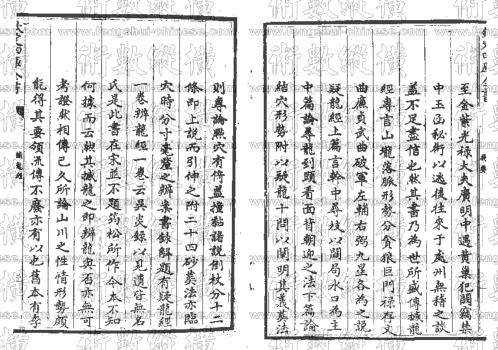 至金紫光祿大夫廣明中遇黃巢犯闕竊禁
中玉函秘術以逃後往來于處州無稽之談
蓋不足盡信也然其書乃為世所盛傳撼龍
經專言山壠落脈形勢分貪狼巨門祿存文
曲廉貞武曲破軍左輔右弼九星各為之說
疑龍經上篇言幹中尋枝以關局水口為主
中篇論尋龍到頭看面背朝迎之法下篇論
結穴形勢附以疑龍十問以闡明其義葬法
則專論㸃穴有倚蓋撞黏諸說倒杖分十二
條即上說而引伸之附二十四砂葬法亦臨
穴時分寸毫釐之辨案書錄解題有疑龍經
一卷辨龍經一卷云吳炎錄以見遺皆無名
氏是此書在宋並不題筠松所作今本不知
何據而云然其撼龍之即辨龍與否亦無可
考證然相傳已久所論山川之性情形勢頗
能得其要領流傳不廢亦有以也舊本有李